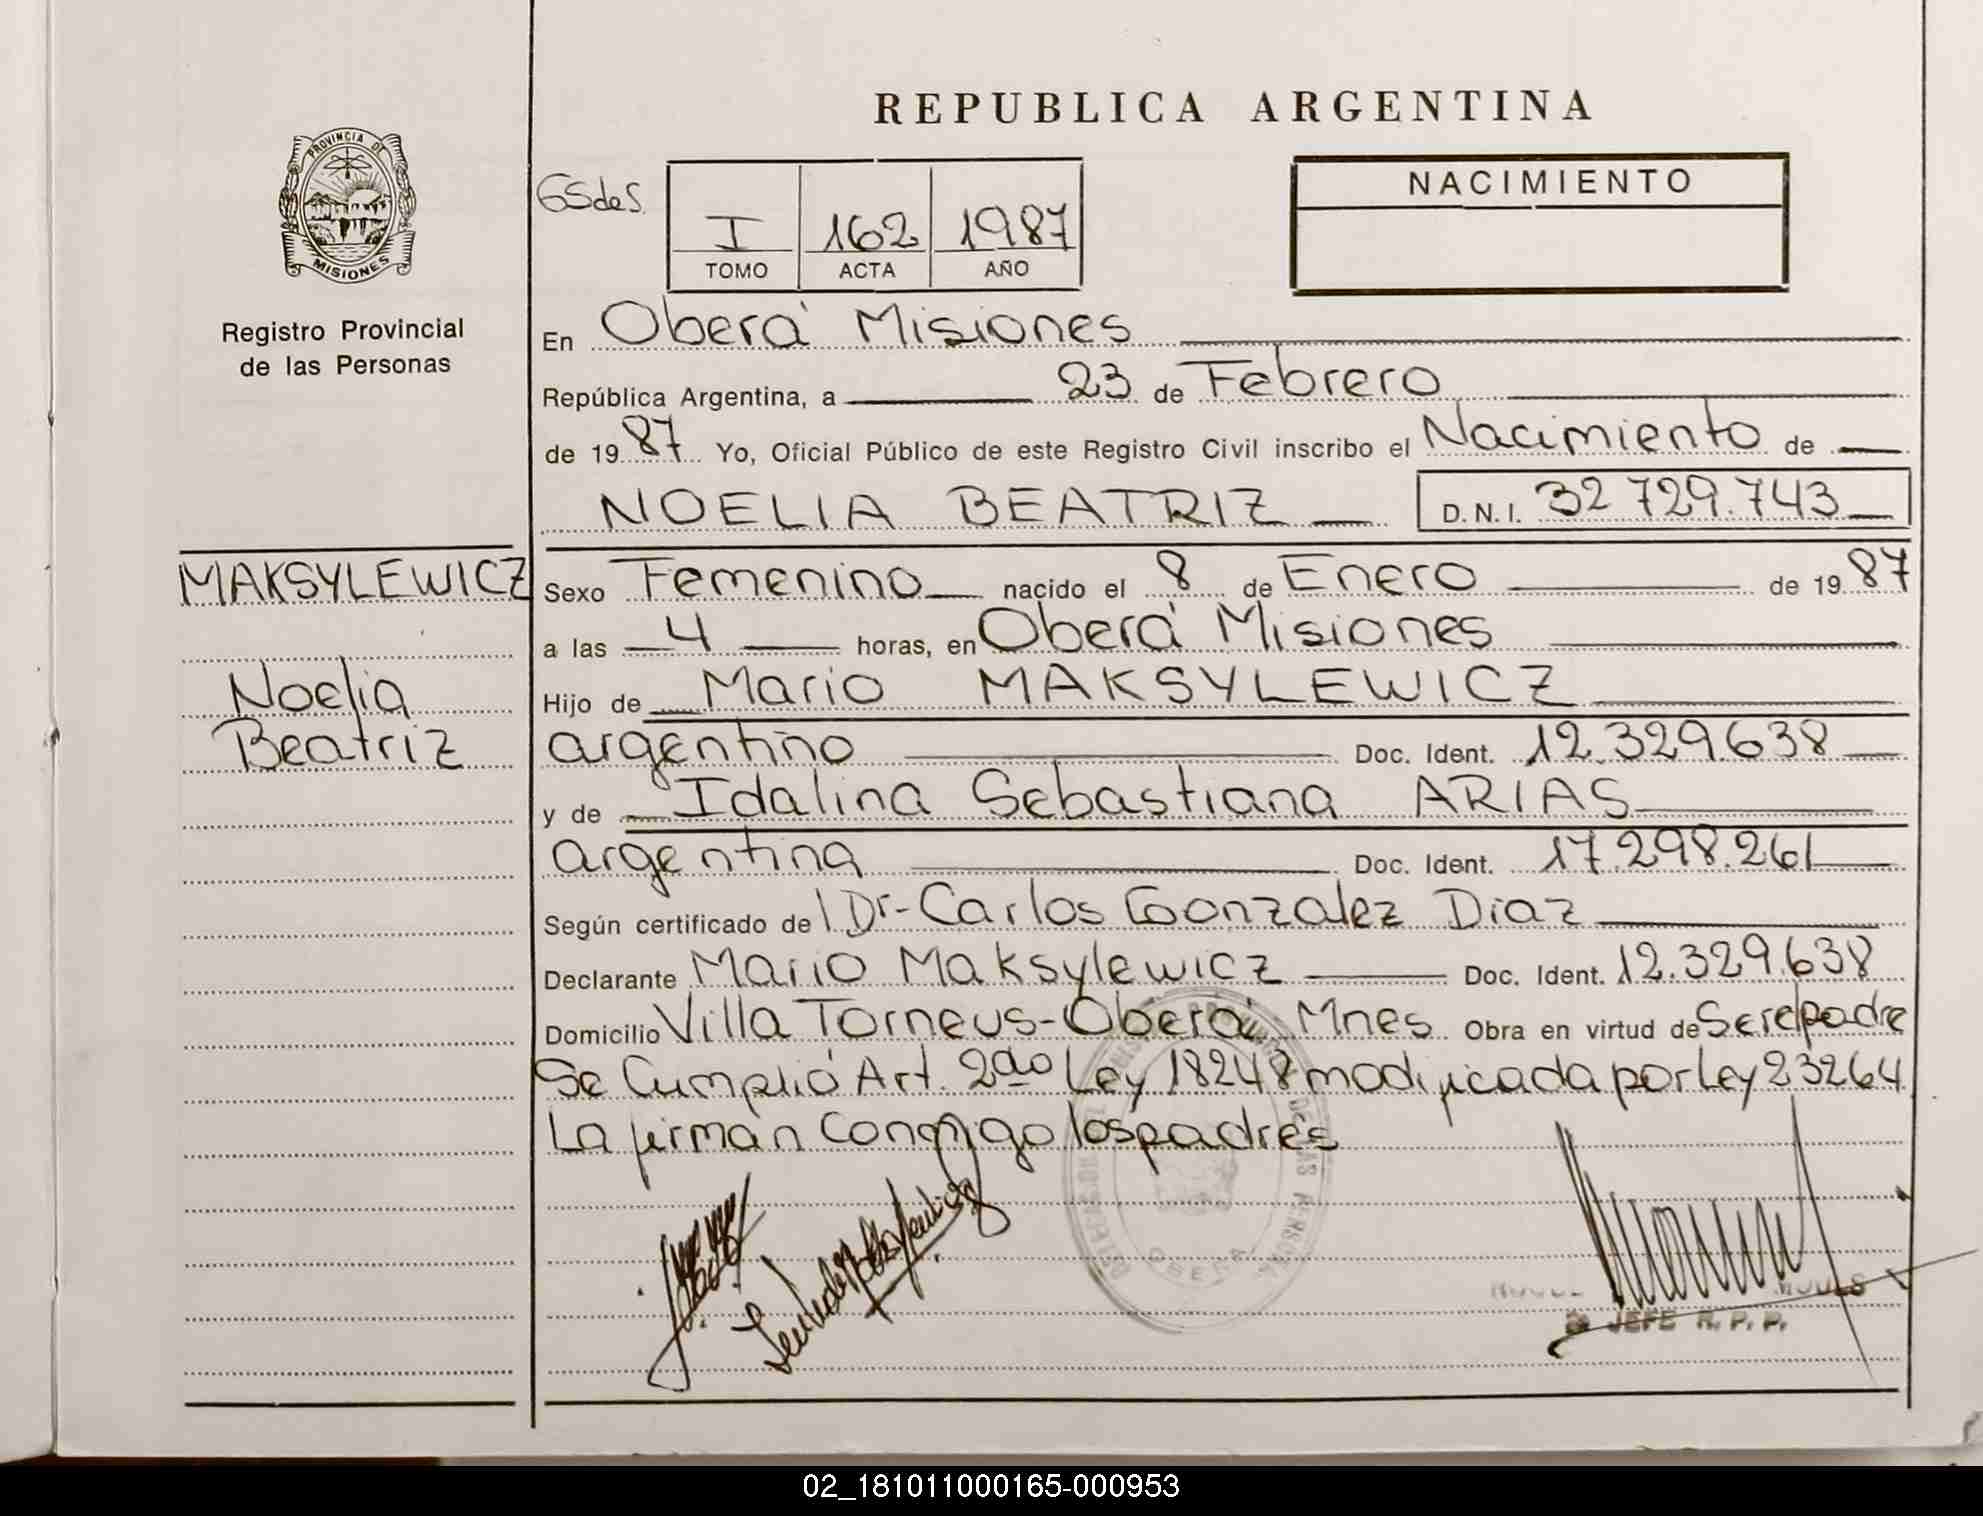 REPUBLICA ARGENTINA
PROVINCIA DE
MISIONES
Registro Provincial
de las Personas
I 162 1987
TOMO ACTA AÑO
NACIMIENTO
En Oberá Misiones
República Argentina, a 23 de Febrero
de 1987 Yo, Oficial Público de este Registro Civil inscribo el Nacimiento de
NOELIA BEATRIZ D.N.I. 32 729.743
MAKSYLEWICZ
Noelia
Beatriz
Sexo Femenino nacido el 8 de Enero de 1987
a las 4 horas, en Oberá Misiones
Hijo de Mario MAKSYLEWICZ
argentino Doc. Ident. 12.329.638
y de Idalina Sebastiana ARIAS
argentina Doc. Ident. 17.298.261
Según certificado de Dr- Carlos Gonzalez Diaz
Declarante Mario Maksylewicz Doc. Ident. 12.329.638
Domicilio Villa Torneus-Oberá Mnes Obra en virtud de Ser el padre
Se Cumplió Art. 2do Ley 18248 modificada por Ley 23264
La firman Conmigo los padres
OBERA
JEFE R. P. P.
02_181011000165-000953